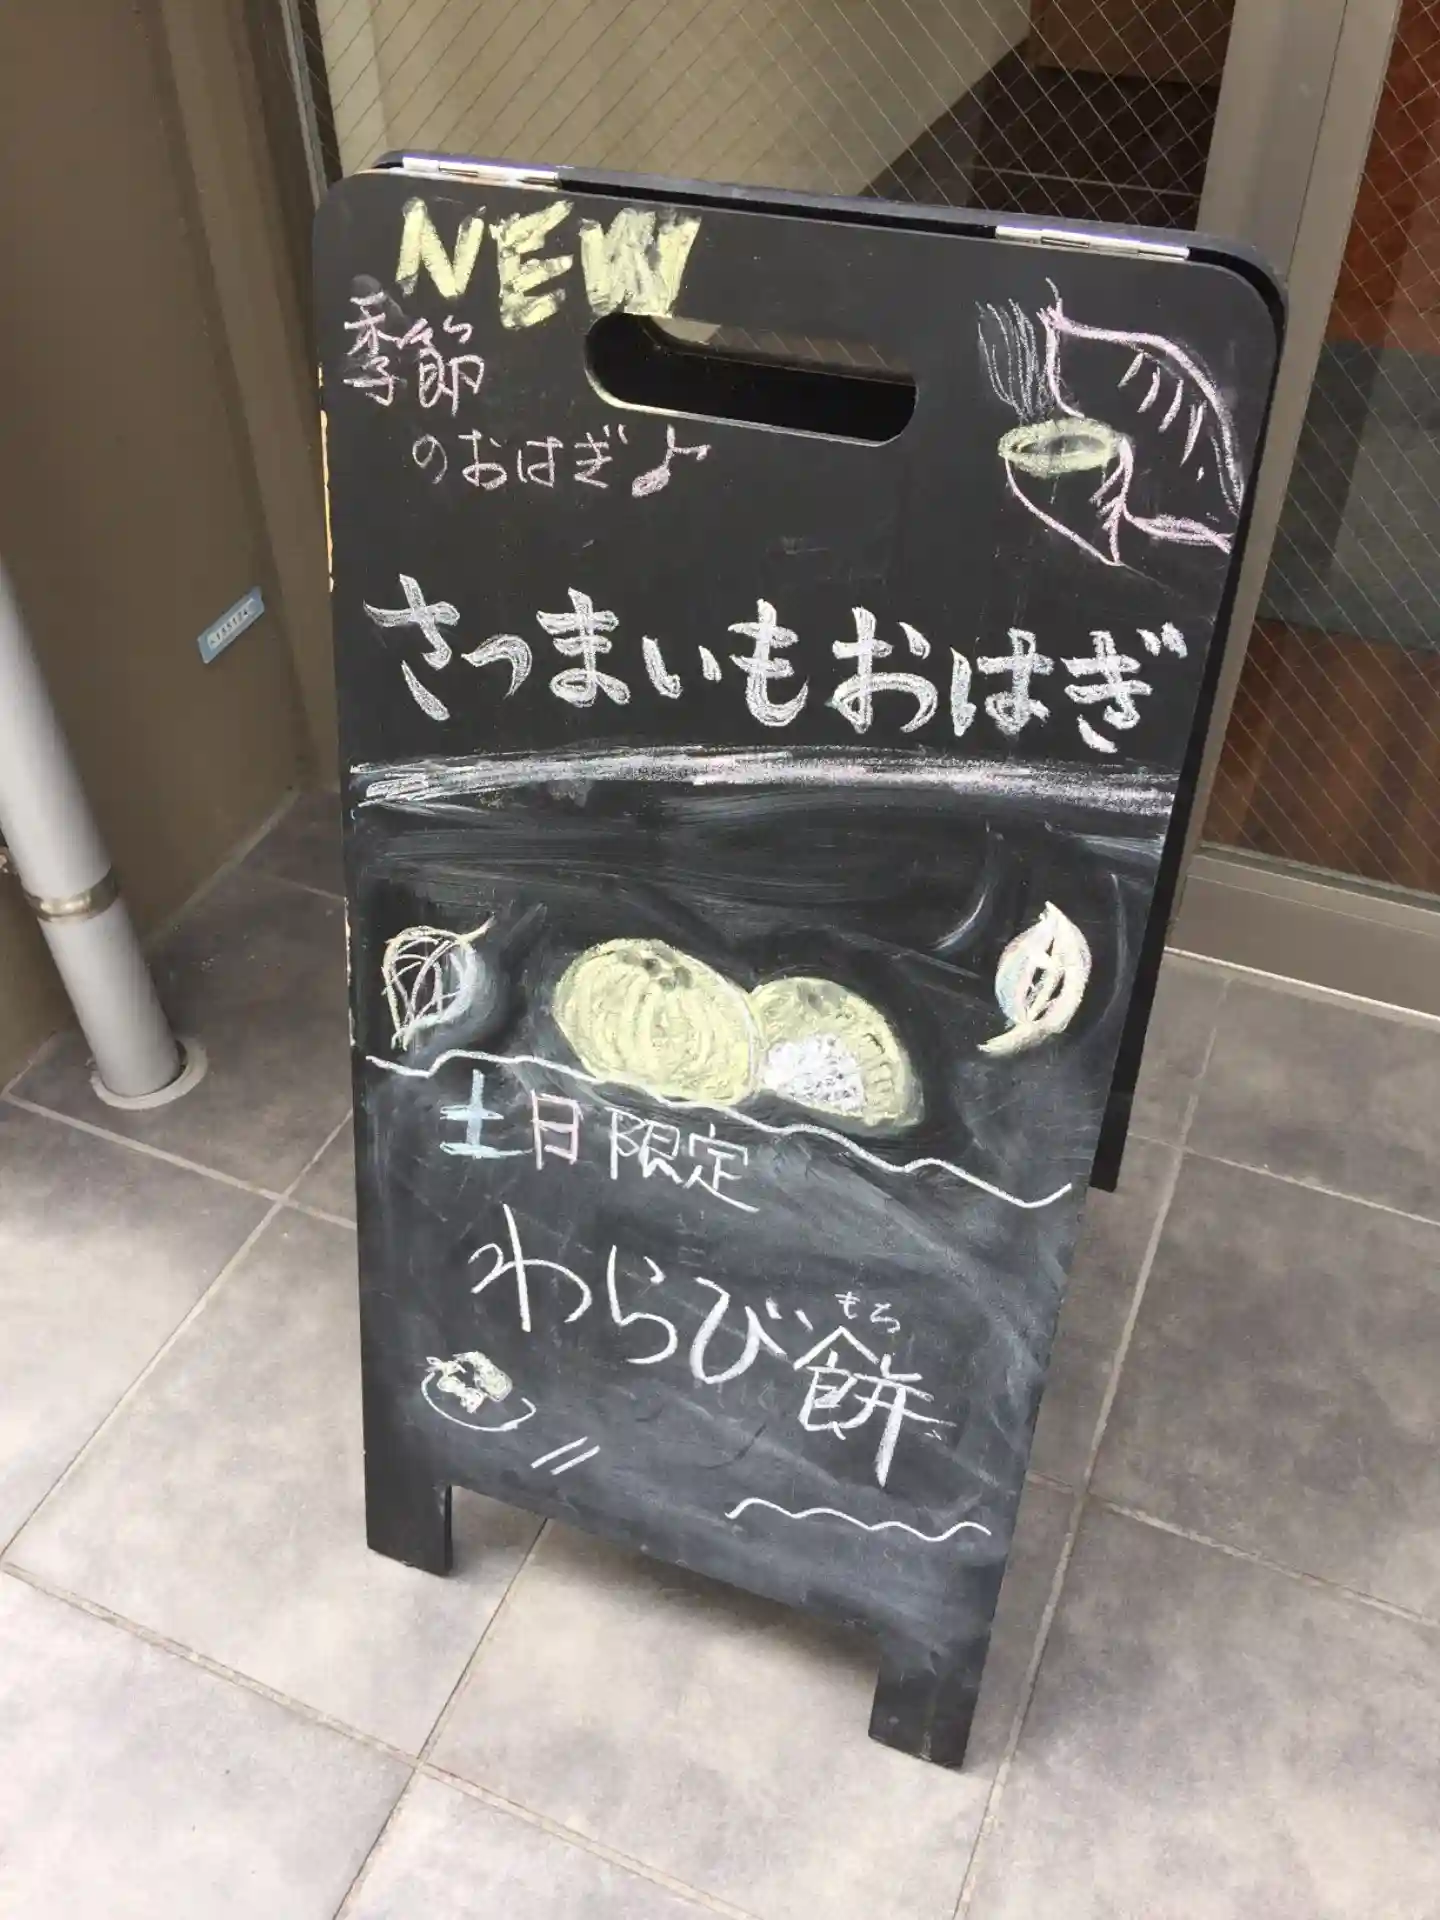 NEW
季節
のおはぎ♪
さつまいもおはぎ
土日限定
もち
わらび餅